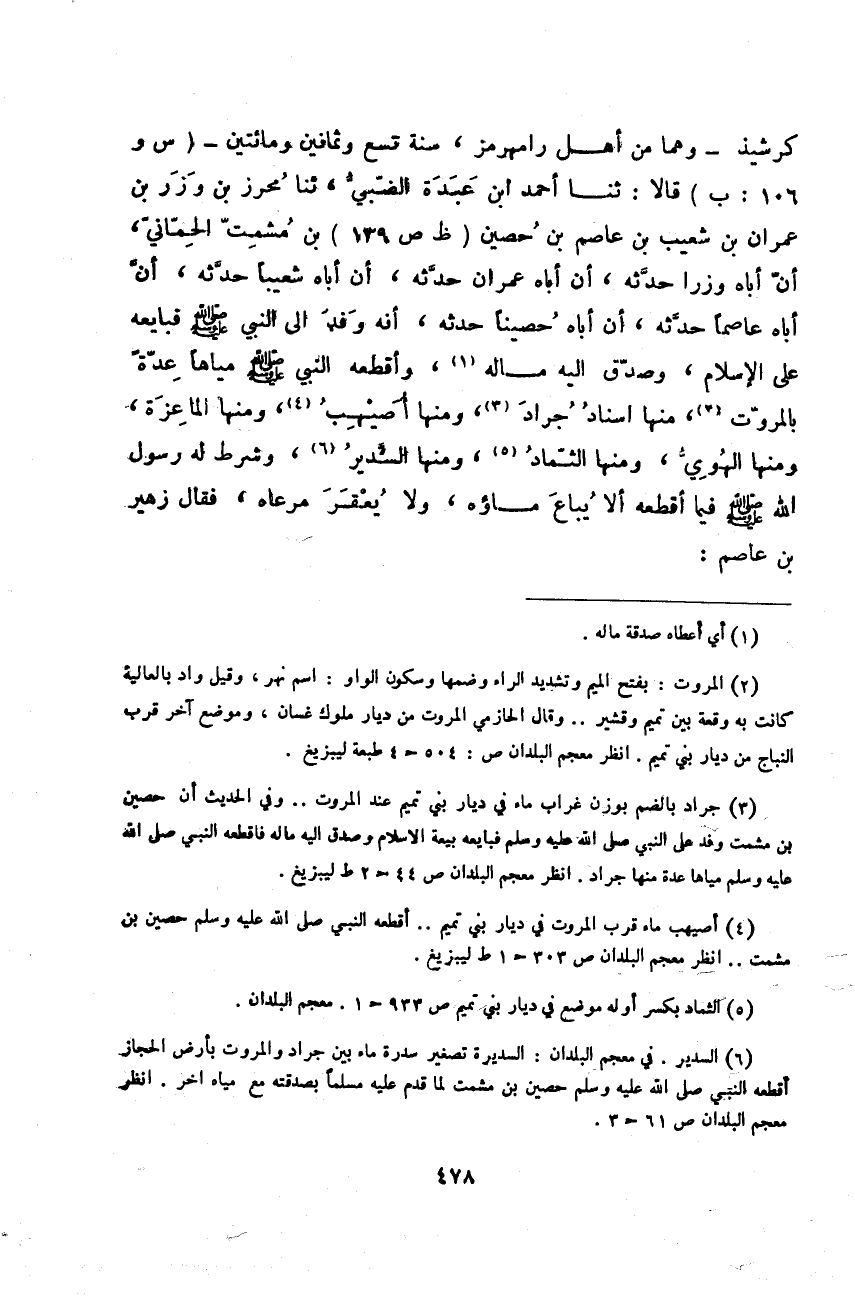 كرشيذ ـ وهما من أهـــل رامهرمز ، سنة تسع وثمانين ومائتين ـ ( س و
١٠٦ : ب ) قالا : ثنـــا أحمد ابن عَبَدَة الضّبيُّ ، ثنا مُحرز بن وَزَر بن
عمران بن شعيب بن عاصم بن حُصين ( ظ ص ١٣٩ ) بن مُشمِتّ الحِمّانيّ ،
أنّ أباه وزرا حدَّثه ، أن أباه عمران حدَّثه ، أن أباه شعيباً حدَّثه ، أنَّ
أباه عاصماً حدَّثه ، أن أباه حُصيناً حدثه ، أنه وَفدَ الى النبي ﷺ فبايعه
على الإسلام ، وصدّق اليه مـــاله (١) ، وأقطعه النبي ﷺ مياهاً عِدّةً
بالمروّت (٢)، منها اسنادُ جُرادَ (٣)، ومنها أصَيْهِبُ (٤)، ومنها الماعِزَة ،
ومنها الهُوِيُّ ، ومنها الثمادُ (٥) ، ومنها السَّديرُ (٦) ، وشرط له رسول
الله ﷺ فيما أقطعه ألا يُباعَ مـــاؤه ، ولا يُعْقَرَ مرعاه ، فقال زهير
بن عاصم :
(١) أي أعطاه صدقة ماله .
(٢) المروت : بفتح الميم وتشديد الراء وضمها وسكون الواو : اسم نهر ، وقيل واد بالعالية
كانت به وقعة بين تميم وقشير .. وقال الحازمي المروت من ديار ملوك غسان ، وموضع آخر قرب
النباج من ديار بني تميم . انظر معجم البلدان ص : ٥٠٤ ح ٤ طبعة ليبزيغ .
(٣) جراد بالضم بوزن غراب ماء في ديار بني تميم عند المروت .. وفي الحديث أن حصين
بن مشمت وفد على النبي صلى الله عليه وسلم فبايعه بيعة الاسلام وصدق اليه ماله فاقطعه النبي صلى الله
عليه وسلم مياها عدة منها جراد . انظر معجم البلدان ص ٤٤ ح ٢ ط ليبزيغ .
(٤) أصيهب ماء قرب المروت في ديار بني تميم .. أقطعه النبي صلى الله عليه وسلم حصين بن
مشمت .. انظر معجم البلدان ص ٣٠٣ ح ١ ط ليبزيغ .
(٥) الثماد بكسر أوله موضع في ديار بني تميم ص ٩٣٣ ح ١ . معجم البلدان .
(٦) السدير . في معجم البلدان : السديرة تصغير سدرة ماء بين جراد والمروت بأرض الحجاز
أقطعه النبي صلى الله عليه وسلم حصين بن مشمت لما قدم عليه مسلماً بصدقته مع مياه اخر . انظر
معجم البلدان ص ٦١ ح ٣ .
٤٧٨